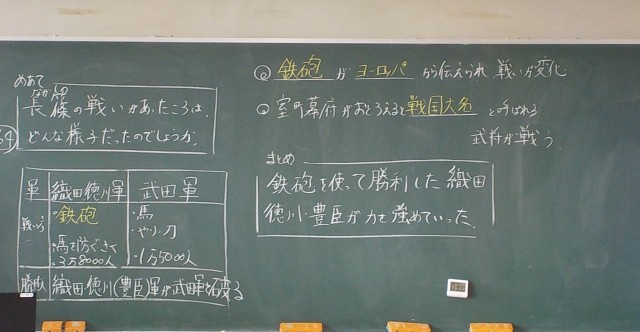 めあて
ながしの
長篠の戦いがあったころは、
どんな様子だったのでしょうか。
64
軍 織田徳川軍 武田軍
戦い方 ・鉄砲 ・馬
・やり・刀
・馬を防ぐさく
・3万8000人 ・1万5000人
勝敗 織田徳川(豊臣)軍が武田軍を破る
◎ 鉄砲 が ヨーロッパ から伝えられ 戦いが変化
◎ 室町幕府がおとろえると戦国大名 と呼ばれる
武将が戦う
まとめ
鉄砲を使って勝利した織田
徳川・豊臣が力を強めていった。